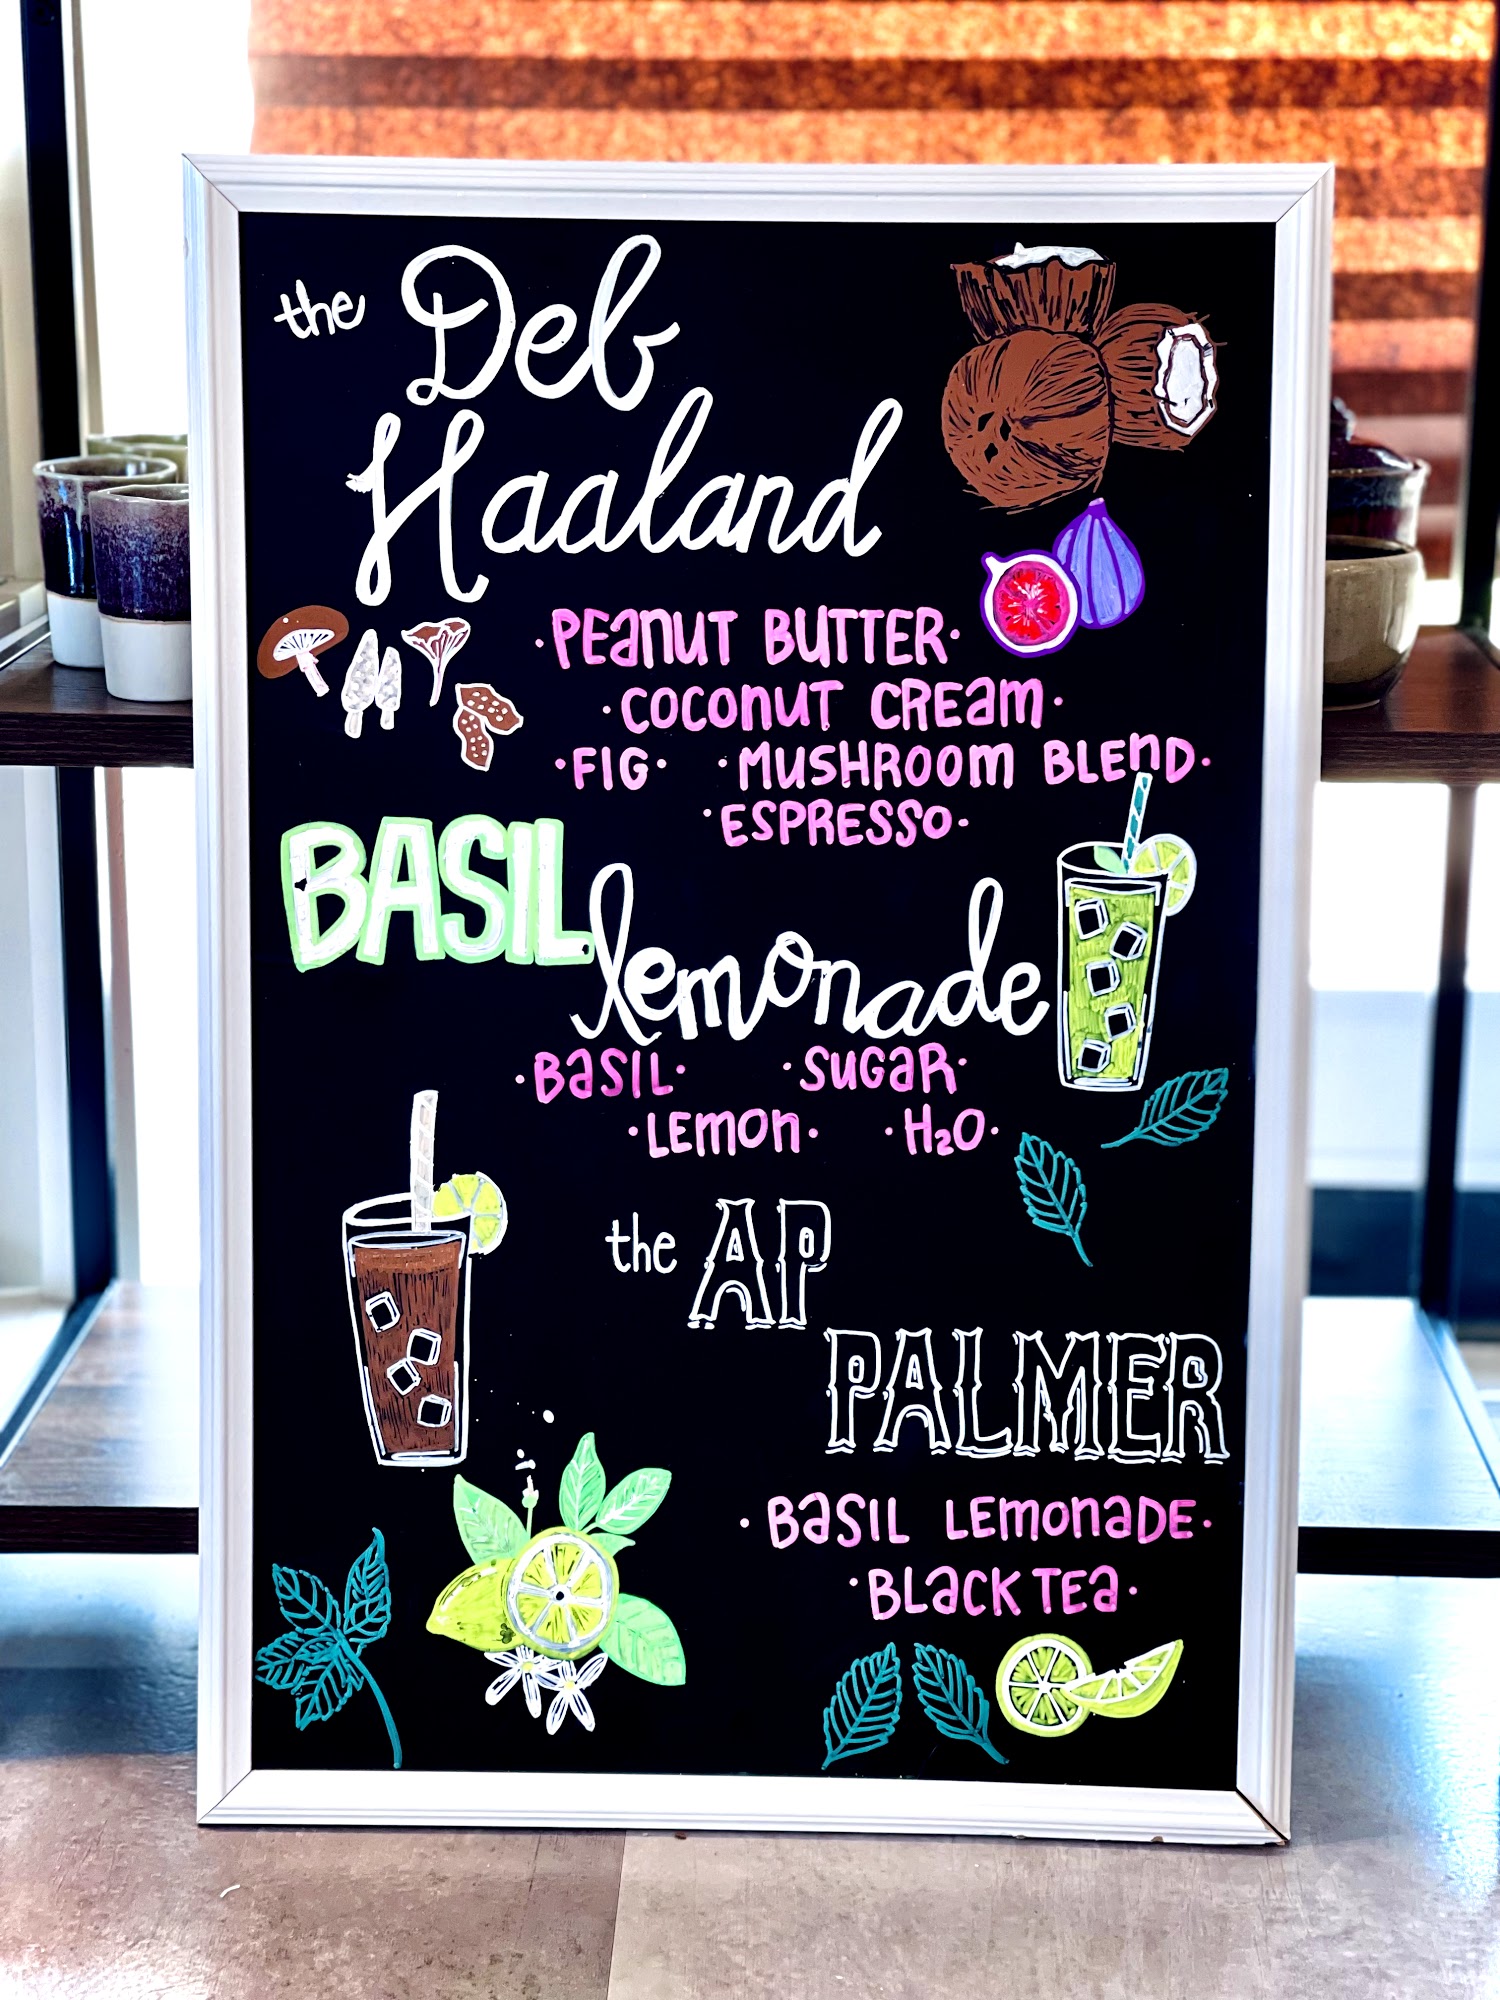 the Deb
Haaland
·PEANUT BUTTER·
·COCONUT CREAM·
·FIG· ·MUSHROOM BLEND·
·ESPRESSO·
BASIL
lemonade
·BASIL· ·SUGAR·
·LEMON· ·H₂O·
the AP
PALMER
·BASIL LEMONADE·
·BLACK TEA·